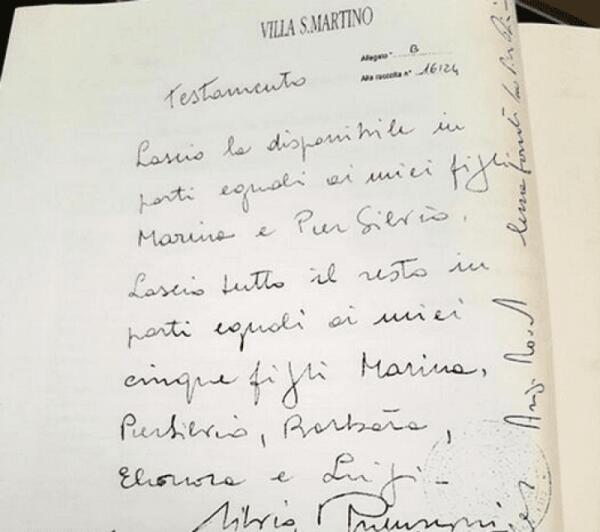 VILLA S.MARTINO
Allegato "B
Alla raccolta N° 16124
Testamento
Lascio la disponibile in
parti eguali ai miei figli
Marina e Pier Silvio.
Lascio tutto il resto in
parti eguali ai miei
cinque figli Marina,
PierSilvio, Barbara,
Eleonora e Luigi –
Silvio